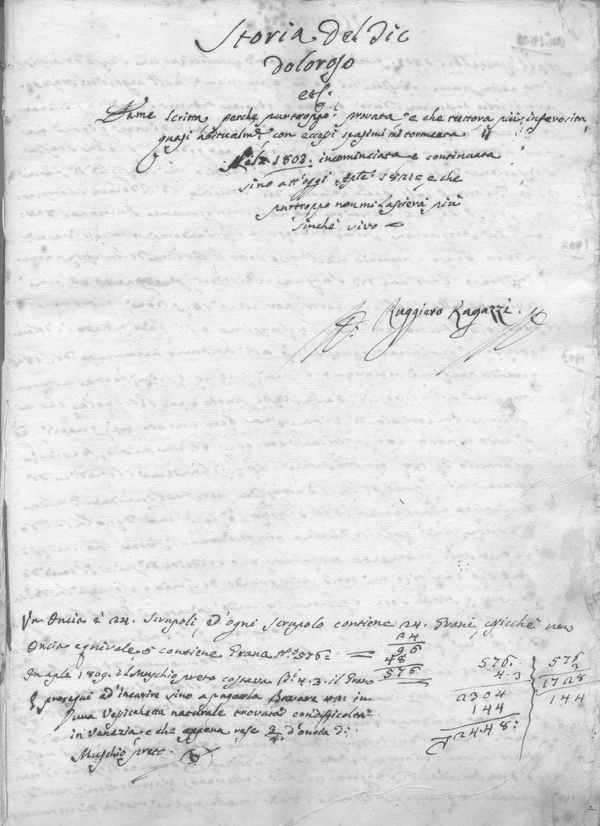 Storia del Tic
doloroso
etc.
Da me Scritta, perche purtroppo provata e che tuttora più infierosita
quasi abitualmte con eccessi spasimi mi tormenta
Nel 1803: incominciata e continuata
sino att'oggi 1821 = e che
purtroppo non mi lascierà più
sinchè vivo =
Ruggiero Ragazzi.
Un Oncia è 24. Scrupoli, ed'ogni Scrupolo contiene 24. Grani, sicchè un
Oncia equivale o contiene Grana No. 576 =
24
96
48
576
In aple 1809: il Muschio preto costava 4.3. il Grano
e prosegui ad'incarire sino a pagarla in
una Vesichetta naturale trovata con difficoltà
in Venezia, e che appena rese d'oncia di
Muschio preto.
576.
4.3
2304
144
2448:
576
3
1728
144